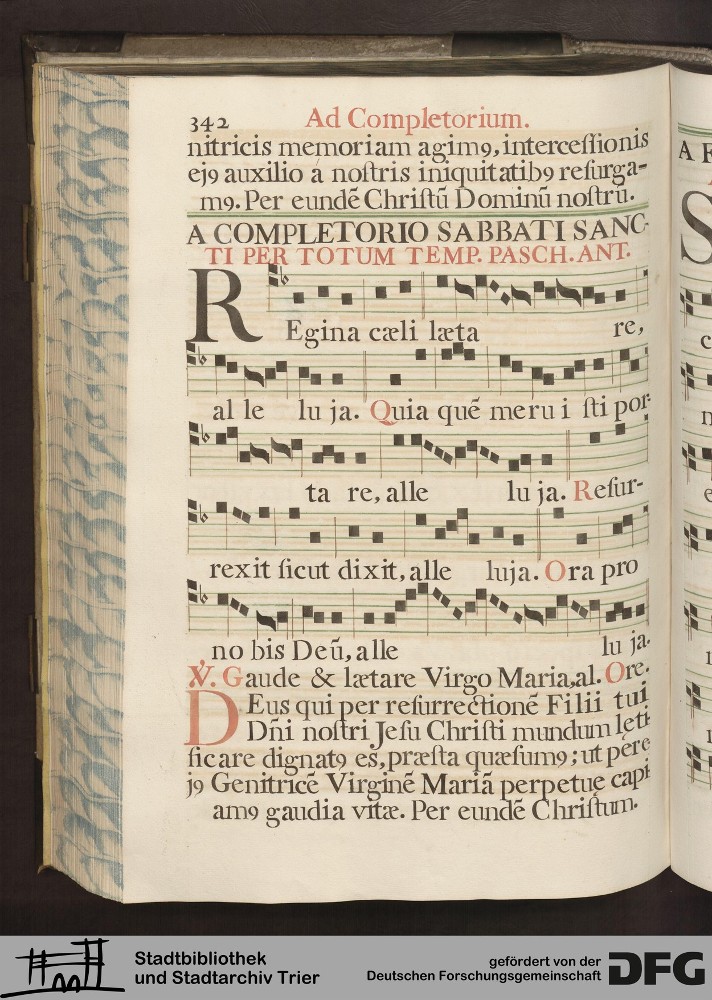 342 Ad Completorium.
nitricis memoriam agimꝯ, interceſſionis
ejꝯ auxilio á noſtris iniquitatibꝯ reſurga-
mꝯ. Per eundē Chriſtū Dominū noſtrū.
A COMPLETORIO SABBATI SANC-
TI PER TOTUM TEMP. PASCH. ANT.
REgina cæli læta re,
al le lu ja. Quia quē meru i ſti por-
ta re, alle lu ja. Reſur-
rexit ſicut dixit, alle luja. Ora pro
no bis Deū, alle lu ja.
℣. Gaude & lætare Virgo Maria, al. Ore.
DEus qui per reſurrectionē Filii tui
Dn̄i noſtri Jeſu Chriſti mundum lęti-
ficare dignatꝯ es, præſta quæſumꝯ; ut per e-
jꝯ Genitricē Virginē Mariā perpetuę capi-
amꝯ gaudia vitæ. Per eundē Chriſtum.
A
S
Stadtbibliothek
und Stadtarchiv Trier
gefördert von der
Deutschen Forschungsgemeinschaft
DFG